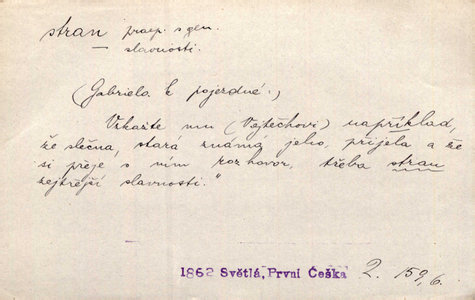 stran praep. s gen.
— slavnosti.
(Gabriela k pojezdné.)
Vzkažte mu (Vojtěchovi) například,
že slečna, stará známá jeho, přijela a že
si přeje s ním rozhovor, třeba stran
zejtřejší slavnosti."
1862 Světlá, První Češka 2. 159, 6.